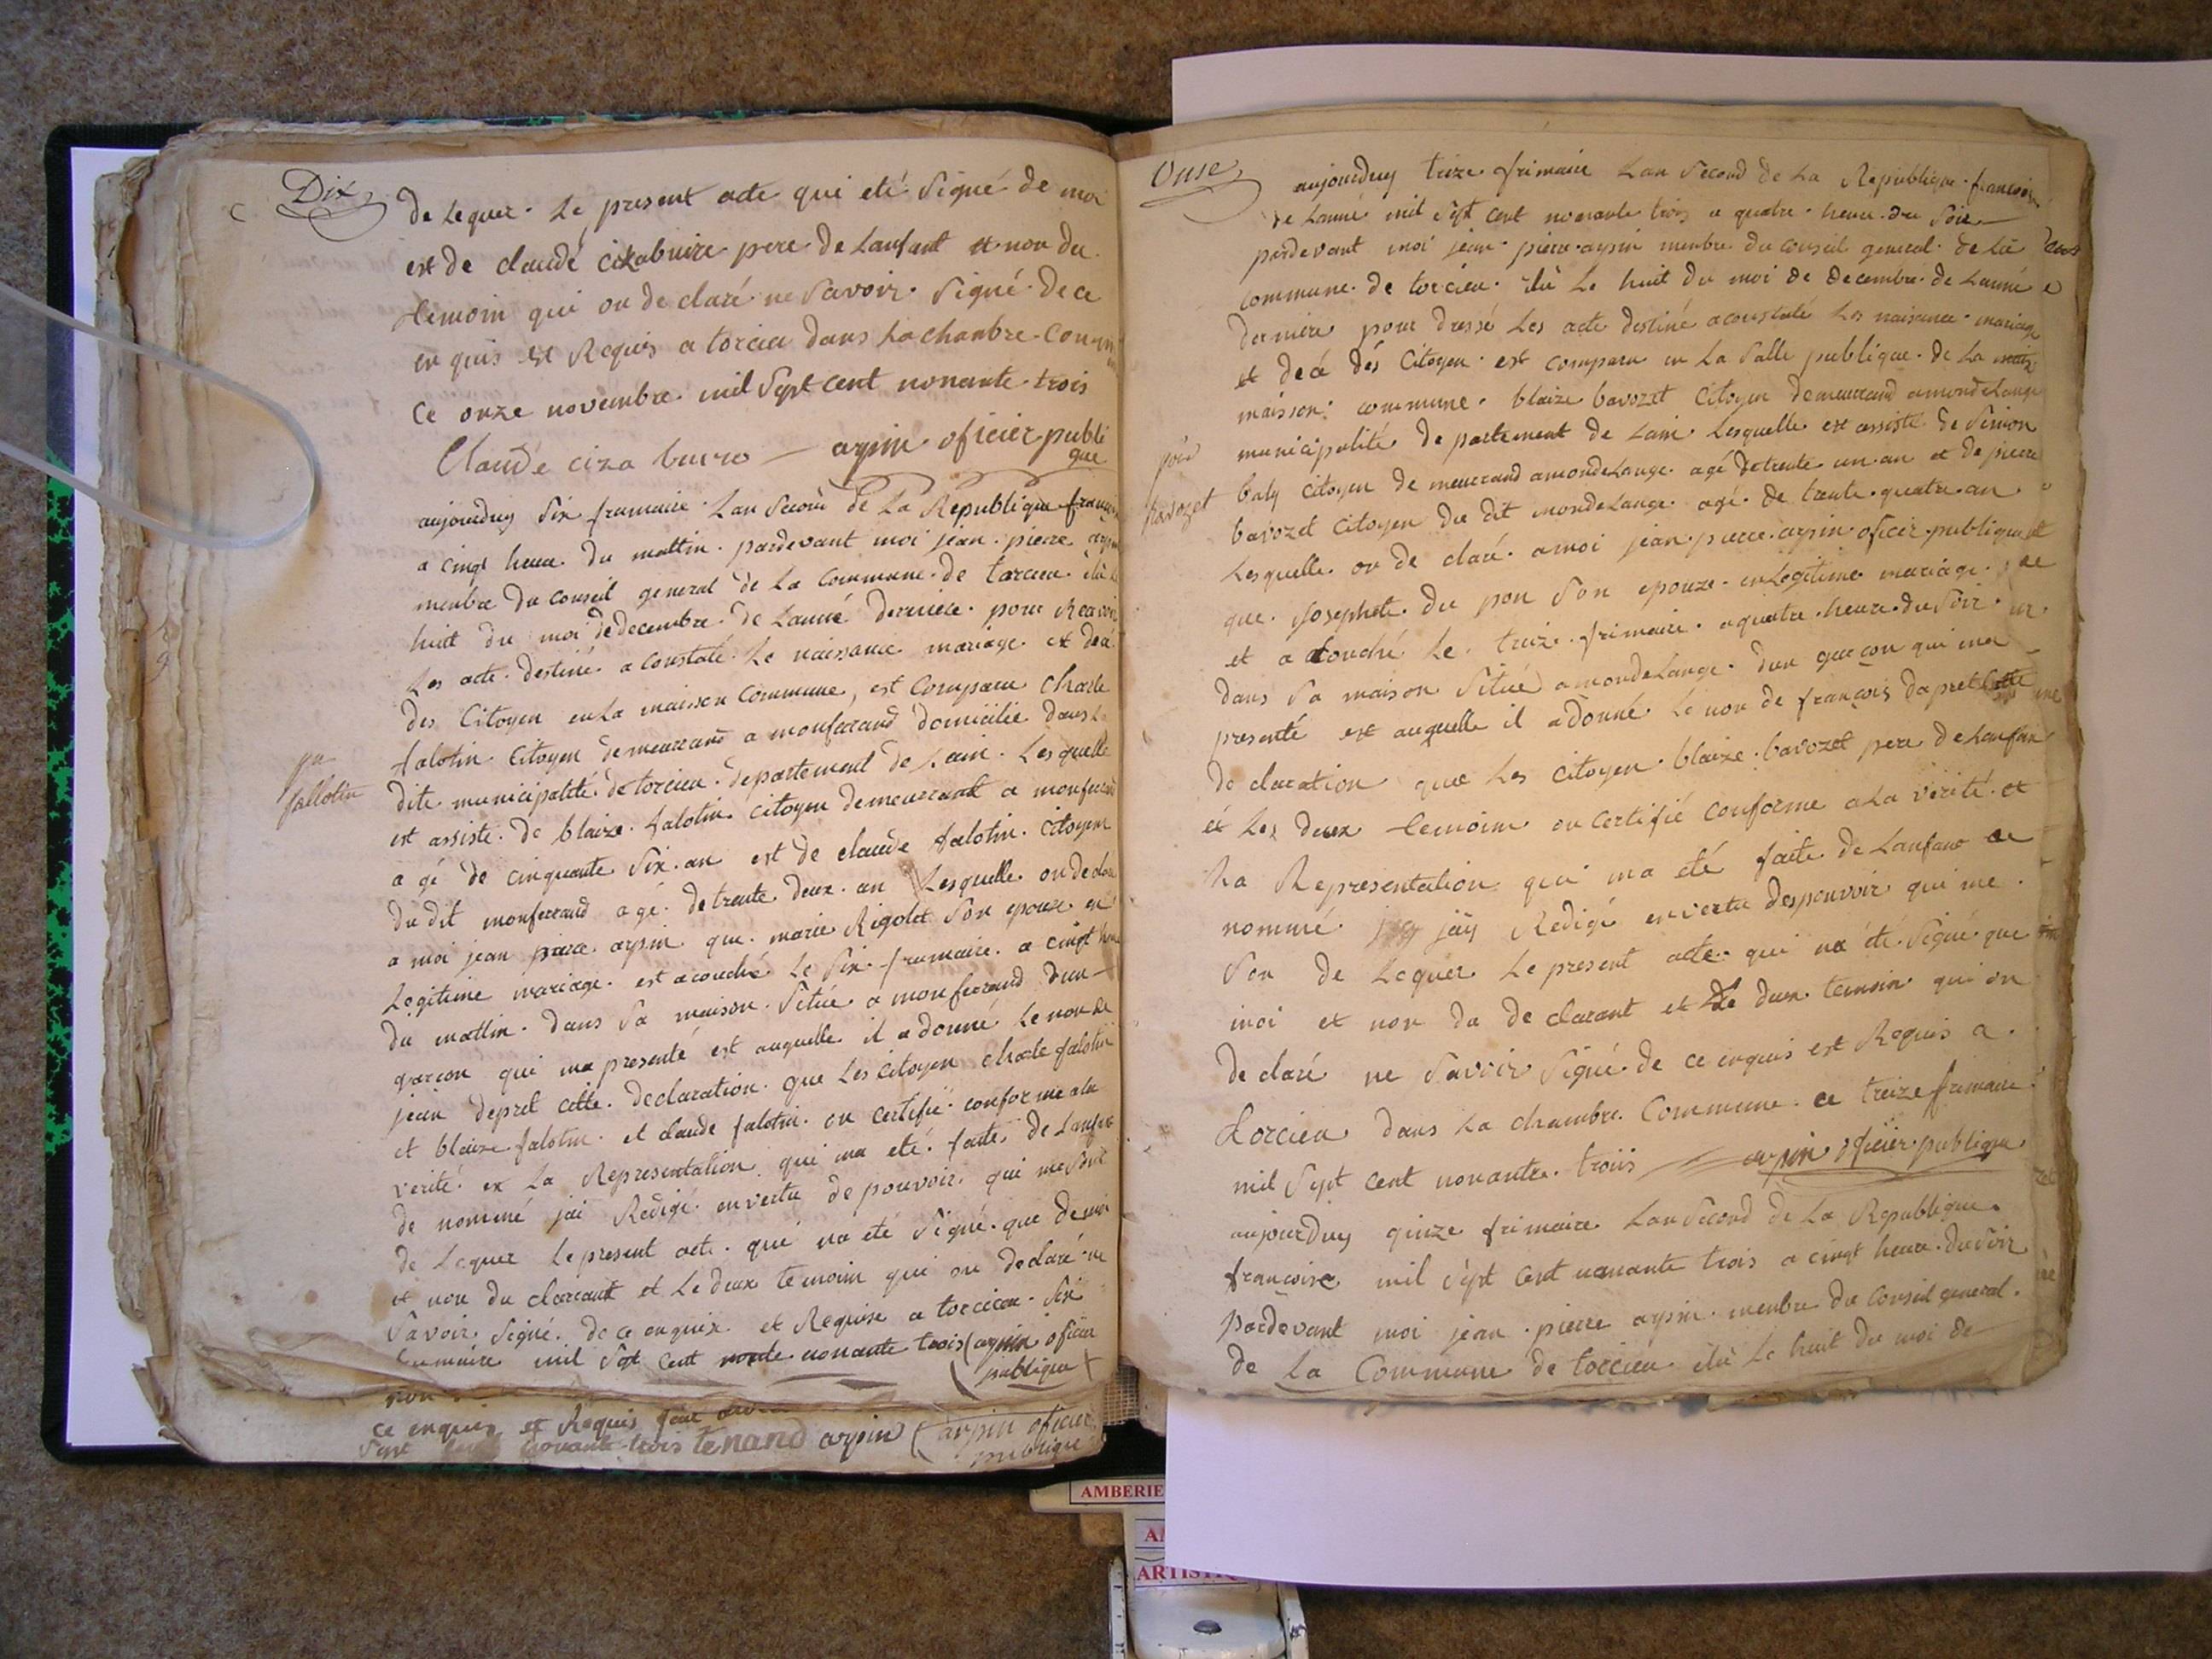 Dix
de Lequer. Le present acte qui eté Signé de moi
est de claude cizabuire pere de Lanfant et non du
temoin qui on de claré ne Savoir Signé de ce
en quis est Requis a torcieu dans La chanbre Comm
Ce onze novembre mil Sept cent nonante trois
Claude ciza buiro — arpin oficier publi
que
aujourduy Six frumaire Lan Second de La Republique françois
a cinqt heure du mattin pardevant moi jean pierre arpin
menbre du conseil general de La Commune de torcieu élù Le
huit du moi de decembre de Lanné derniere pour Recevoir
Les acte destiné a Constaté Le naissance mariage et decé
des Citoyen en La maison Commune, est Comparu charle
falotin Citoyen demeurrand a monferand domicilie dans La
dite municipalité de torcieu departement de Lain Lesquelle
est assisté de blaize falotin citoyen demeurrant a monferrand
a gé de cinquante Six an est de claude falotin citoyen
du dit monferrand agé de trente deux an Lesquelle on de claré
a moi jean pierre arpin que marie Rigolet Son epouze en
Legitime mariage est acouché Le Six frumaire a cinqt heure
du mattin dans Sa maison Situé a monferrand dun
garcon qui ma presenté est auquelle il a donné Le non de
jean depret cette declaration que Les citoyen charle falotin
et blaize falotin et claude falotin on certifié conforme a la
verité et La Representation qui ma eté faite de Lanfant
de nommé jai Redigé en vertu de pouvoir qui me Son
de Lequer Le present acte qui na eté Signé que de moi
et non du clarant et Le deux temoin qui on declaré ne
Savoir Signé de ce enquis et Requise a torcieu Six
frumaire mil Sept cent nonante trois (arpin oficier
publique
pu
fallotin
non
ce enquis et Requis
Sept nonante trois tenand arpin ( arpin oficier
publique
Onse
aujourduy treze frimaire Lan Second de La Republique francoise
de Lanné mil Sept cent nonante trois a quatre heure du Soir
pardevant moi jean pierre arpin menbre du conseil general de La
commune de torcieu élù Le huit du moi de decembre de Lanné
derniere pour dressé Les acte destiné a constaté Les naisance mariage
et decé dés Citoyen est comparu en La Salle publique de La
maisson commune blaize bavozet Citoyen demeurrand a mondelange
municipalité departement de Lain Lesquelle est assisté de Simon
baly citoyen de meurrand a mondelange agé de trente un an et de pierre
bavozet citoyen du dit mondelange agé de trente quatre an
Lesquelle on de claré a moi jean pierre arpin oficer publique
que josephete du pon Son epouze en Legitime mariage
et a couché Le treize frimaire a quatre heure du Soir
dans Sa maison Situé a mondelange dun garçon qui ma
presenté est auquelle il a donné Le non de françois dapret Cette
de claration que Les citoyen blaize bavozet pere de Lanfan
et Les deux temoim on certifié conforme a La vérité et
La Representation qui ma eté faite de Lanfant de
nommé jay Redigé en vertu des pouvoir qui me
Son de Lequer Le present acte qui na été Signé que
moi et non du de clarant et Le deux temoin qui on
declaré ne Savoir Signé de ce enquis est Requis a
torcieu dans La chambre Commune ce treize frimaire
mil Sept cent nonante trois arpin oficier publique
aujourduy quinze frimaire Lan Second de La Republique
francoise mil Sept cent nonante trois a cinqt heure du Soir
pardevant moi jean pierre arpin menbre du Conseil general
de La Commune de torcieu élù Le huit du moi de
bavozet
AMBERIE
ARTISTIQ